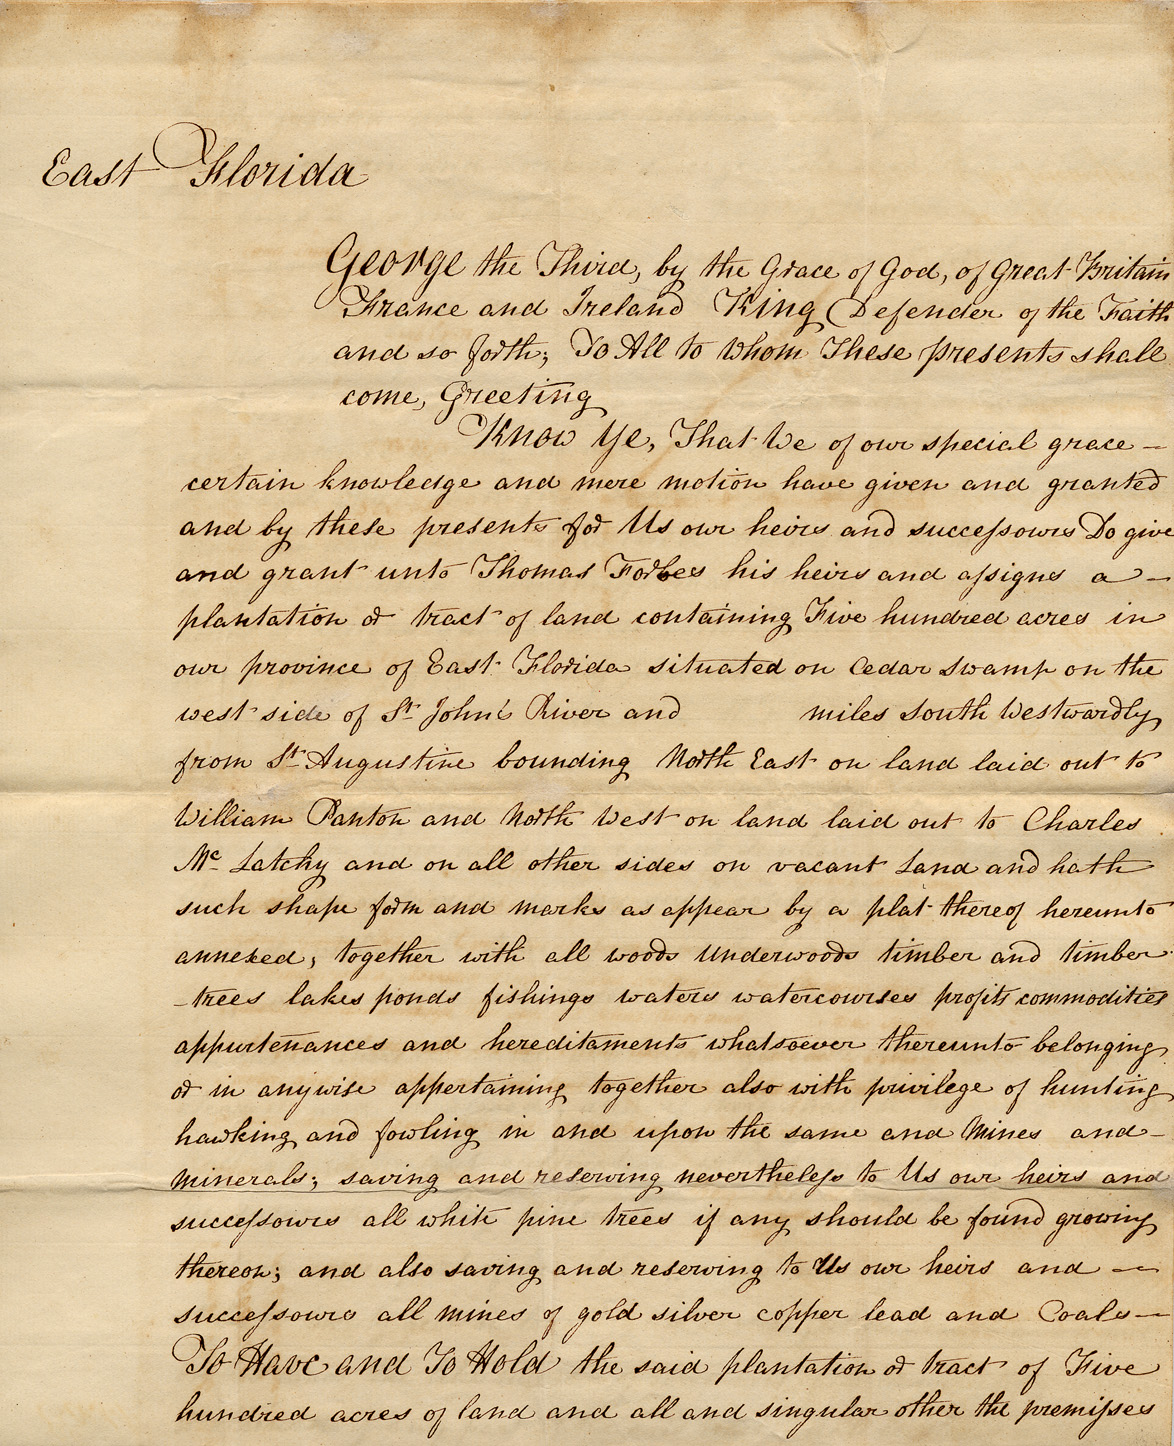 East Florida
George the Third, by the Grace of God, of Great Britain
France and Ireland King Defender of the Faith
and so forth; To All to Whom These presents shall
come, Greeting
Know Ye, That We of our special grace –
certain knowledge and mere motion have given and granted
and by these presents for Us our heirs and successours Do give
and grant unto Thomas Forbes his heirs and assigns a –
plantation or tract of land containing Five hundred acres in
our province of East Florida situated on Cedar Swamp on the
west side of St. John's River and miles South Westwardly
from St. Augustine bounding North East on land laid out to
William Panton and North West on land laid out to Charles
Mc. Latchy and on all other sides on vacant Land and hath
such shape form and marks as appear by a plat thereof hereunto
annexed, together with all woods Underwoods timber and timber
–trees lakes ponds fishings waters watercourses profits commodities
appurtenances and hereditaments whatsoever thereunto belonging
or in anywise appertaining together also with privilege of hunting
hawking and fowling in and upon the same and Mines and –
minerals; saving and reserving nevertheless to Us our heirs and
successours all white pine trees if any should be found growing
thereon; and also saving and reserving to Us our heirs and –
successours all mines of gold silver copper lead and Coals –
To Have and To Hold the said plantation or tract of Five
hundred acres of land and all and singular other the premisses